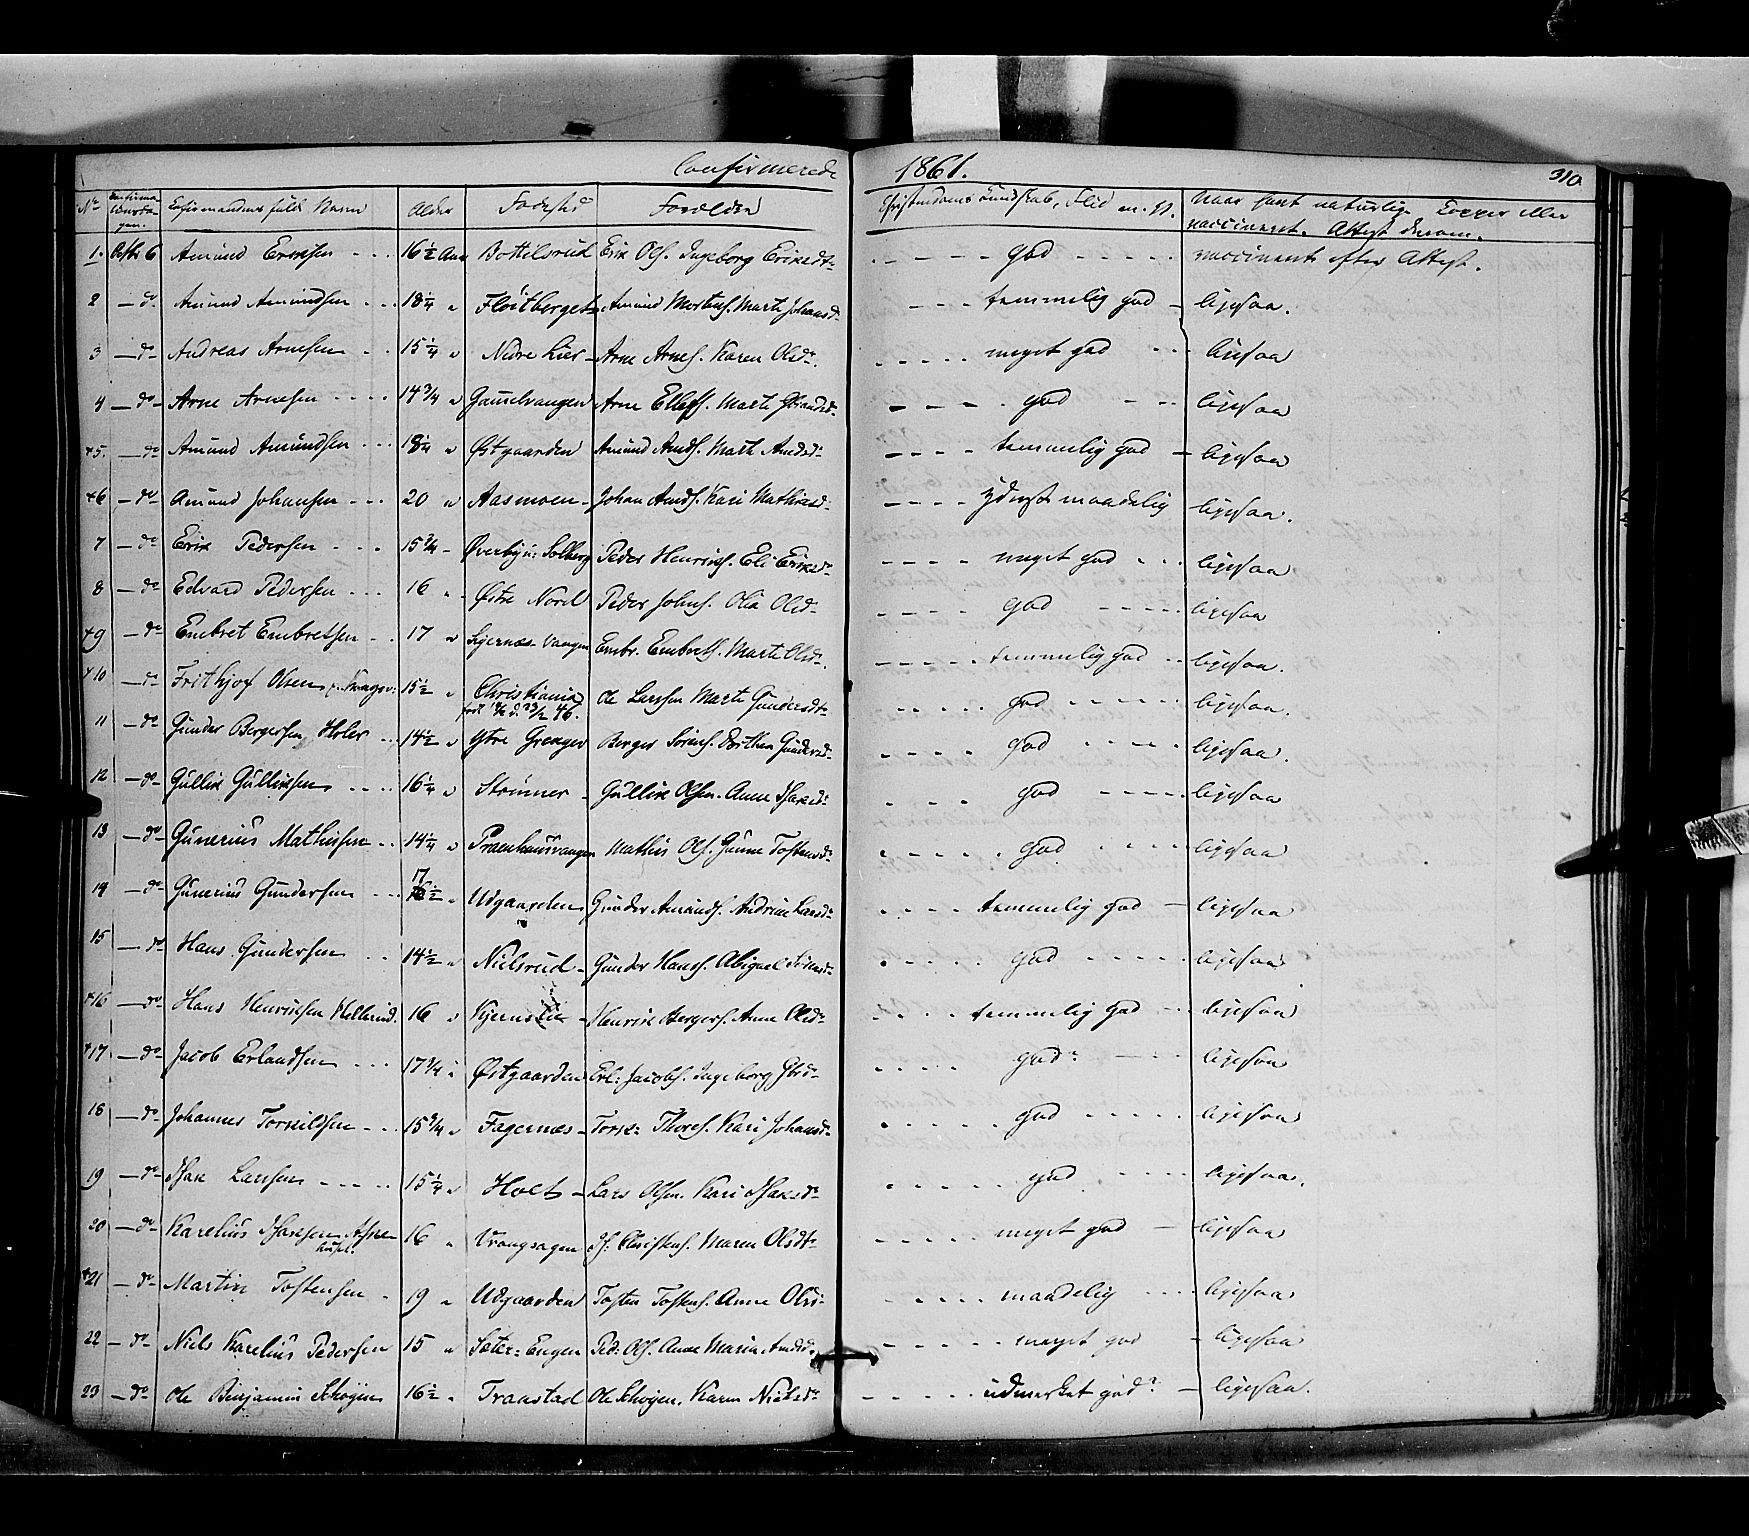 Confirmerede 1861. 310.
No Confirmationsdagen. Confirmandens fulde Navn Alder Fødested Forældre Christendomskundskab, Flid m. v. Naar havt naturlige Kopper eller
vaccineret. Attest derom.
1. Octbr 6 Amund Eriksen - - - 16½ Aar Bottelsrud Erik Ols. Ingeborg Eriksdr - - - - - god - - - - - vaccineret efter Attest.
2 - do Amund Amundsen - - - 18¼ " Fløitberget Amund Mortens. Marte Johansdr - - - temmelig god - ligesaa.
3 - do Andreas Arnesen - - 15¼ " Nedre Lier - Arne Arnes. Karen Olsdr. - - - - meget god - - - ligesaa
4 - do - Arne Arnesen - - - - 14¾ " Gammelvangen Arne Ellefs. Marte - - - - god - - - ligesaa
+5. - do Amund Amundsen - - - 18¼ " Østgaarden Amund Amds. Marte Amdsdr - - - - temmelig god - ligesaa
+6 - do Amund Johansen - - - 20 " Aasmoen - Johan Amds. Kari Mathisdr - - - - yderst maadelig ligesaa.
7 - do Erik Pedersen - - - 15¾ - Øverby u: Solberg Peder Henriks. Eli Eriksdr - - - - meget god - - - ligesaa
8 - do Edvard Pedersen - - - 16 " Østre Nord Peder Johns. Olia Olsdr - - - - god - - - - - ligesaa
+9 - do Embret Embretsen - - 17 " Sigernæs-Vangen Embr. Embrets. Marte Olsdr. - - - - temmelig god - - ligesaa.
+10 - do Frithjof Olsen, Kongsv: 15½ " Christiania Ole Larssen Marte Gundersdr - - - - - god - - - - - ligesaa.
46.
11 - do Gunder Bergersen Holer - - 14½ " Ytre Grenger Berger Sørens. Dorthea Gundersdr - - - - god - - - - ligesaa.
12 - do Gullik Gulliksen - - - - 16¼ " Strømner - Gullik Olsen. Anne Isaksdr - - - - god - - - - - ligesaa
13 - do Gunerius Mathissen - - 14¼ " Mathis Ols. Gunne Tostensdr - - - - - god - - - - - ligesaa
14 - do Gunerius Gundersen - - - 17 Udgaarden Gunder Amunds. Andrine Larsdr - - - - temmelig god - ligesaa
15 - do Hans Gundersen - - 14½ " Nielsrud - Gunder Hans. Abigael - - - - god - - - - - ligesaa
+16 - do Hans Henriksen Hellerud. 16 " Henrik Bergers. Anne Olsdr - - - - temmelig god - - ligesaa
+17 - do Jacob Erlandsen - - - 17¾ " Østgaarden Erl: Jacobs. Ingeborg - - - - god - - - ligesaa
18 - do Johannes Torkildsen - - - 15¾ " Fagernæs - Tork: Thores. Kari Johansdr - - - - - god - - - - - ligesaa
19 - do - Isak Larssen - - - - - 15¼ " Holt - Lars Olsen. Kari Isaksdr - - - - - god - - - - ligesaa.
20 - do - Karelius Isaksen 16 " Vrangsagen Is. Christens. Maren Olsdr - - - - - meget god - ligesaa
+21 - do - Martin Tostensen - 19 " Udgaarden Tosten Tostens. Anne Olsdr - - - - - maadelig - - - - ligesaa
22 - do - Niels Karelius Pedersen 15 " Sæter-Engen Ped: Ols. Anne Maria Amdsdr - - - - - meget god - ligesaa
23 - do - Ole Benjamin Schøyen 16½ " Traastad Ole Schøyen. Karen Nielsdr - - - - - udmærket god - ligesaa.